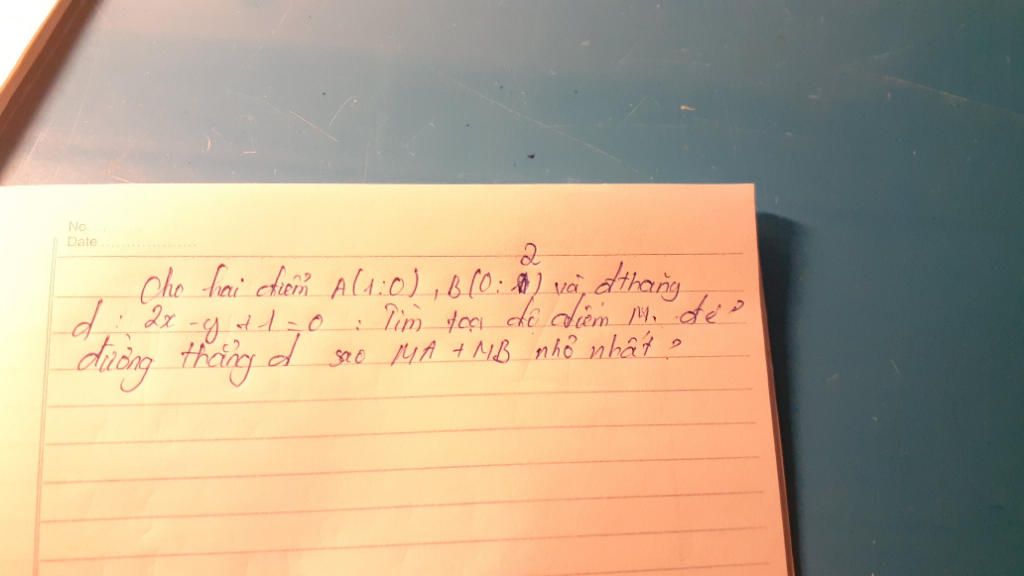 No.............
Date......................
2
Cho hai điểm A(1:0), B(0: ) và đthẳng
d : 2x - y + 1 = 0 : Tìm tọa độ điểm M. để
đường thẳng d sao MA + MB nhỏ nhất ?